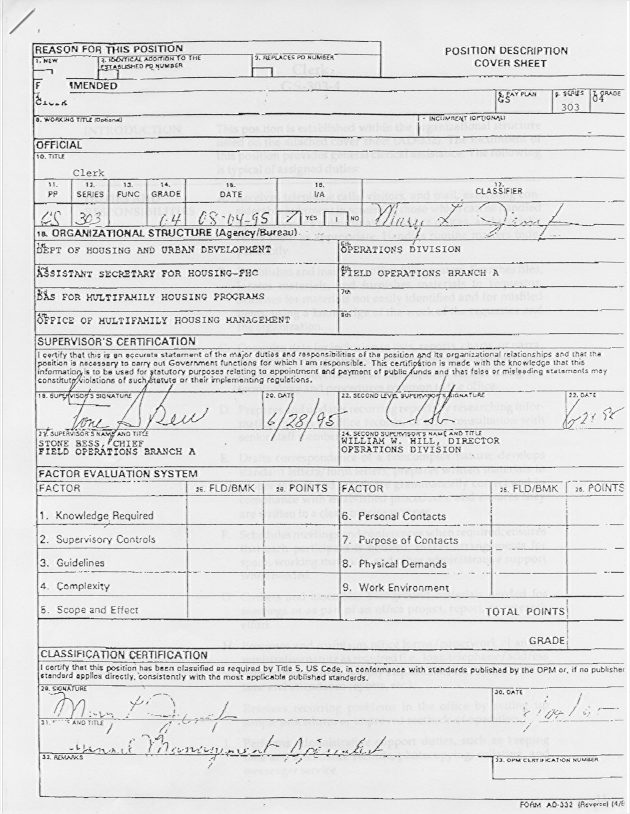 REASON FOR THIS POSITION
1. NEW
2. IDENTICAL ADDITION TO THE ESTABLISHED PD NUMBER
3. REPLACES PD NUMBER
POSITION DESCRIPTION
COVER SHEET
MENDED
5. PAY PLAN
GS
6. SERIES
303
7. GRADE
04
8. WORKING TITLE (Optional)
INCUMBENT (OPTIONAL)
OFFICIAL
10. TITLE
Clerk
11. PP
12. SERIES
13. FUNC
14. GRADE
15. DATE
16. I/A
17. CLASSIFIER
GS 303 04 08-04-95 YES NO Mary L
18. ORGANIZATIONAL STRUCTURE (Agency/Bureau)
DEPT OF HOUSING AND URBAN DEVELOPMENT
5th
OPERATIONS DIVISION
ASSISTANT SECRETARY FOR HOUSING-FHC
6th
FIELD OPERATIONS BRANCH A
DAS FOR MULTIFAMILY HOUSING PROGRAMS
7th
OFFICE OF MULTIFAMILY HOUSING MANAGEMENT
8th
SUPERVISOR'S CERTIFICATION
I certify that this is an accurate statement of the major duties and responsibilities of the position and its organizational relationships and that the
position is necessary to carry out Government functions for which I am responsible. This certification is made with the knowledge that this
information is to be used for statutory purposes relating to appointment and payment of public funds and that false or misleading statements may
constitute violations of such statute or their implementing regulations.
19. SUPERVISOR'S SIGNATURE
20. DATE
22. SECOND LEVEL SUPERVISOR'S SIGNATURE
23. DATE
6/28/95
21. SUPERVISOR'S NAME AND TITLE
STONE BESS, CHIEF
FIELD OPERATIONS BRANCH A
24. SECOND SUPERVISOR'S NAME AND TITLE
WILLIAM W. HILL, DIRECTOR
OPERATIONS DIVISION
FACTOR EVALUATION SYSTEM
FACTOR
25. FLD/BMK
26. POINTS
FACTOR
25. FLD/BMK
26. POINTS
1. Knowledge Required
6. Personal Contacts
2. Supervisory Controls
7. Purpose of Contacts
3. Guidelines
8. Physical Demands
4. Complexity
9. Work Environment
5. Scope and Effect
TOTAL POINTS
GRADE
CLASSIFICATION CERTIFICATION
I certify that this position has been classified as required by Title 5, US Code, in conformance with standards published by the OPM or, if no publishe
standard applies directly, consistently with the most applicable published standards.
29. SIGNATURE
30. DATE
Mary L
31. AND TITLE
Management Specialist
32. REMARKS
33. OPM CERTIFICATION NUMBER
FORM AD-332 (Reverse) (4/8